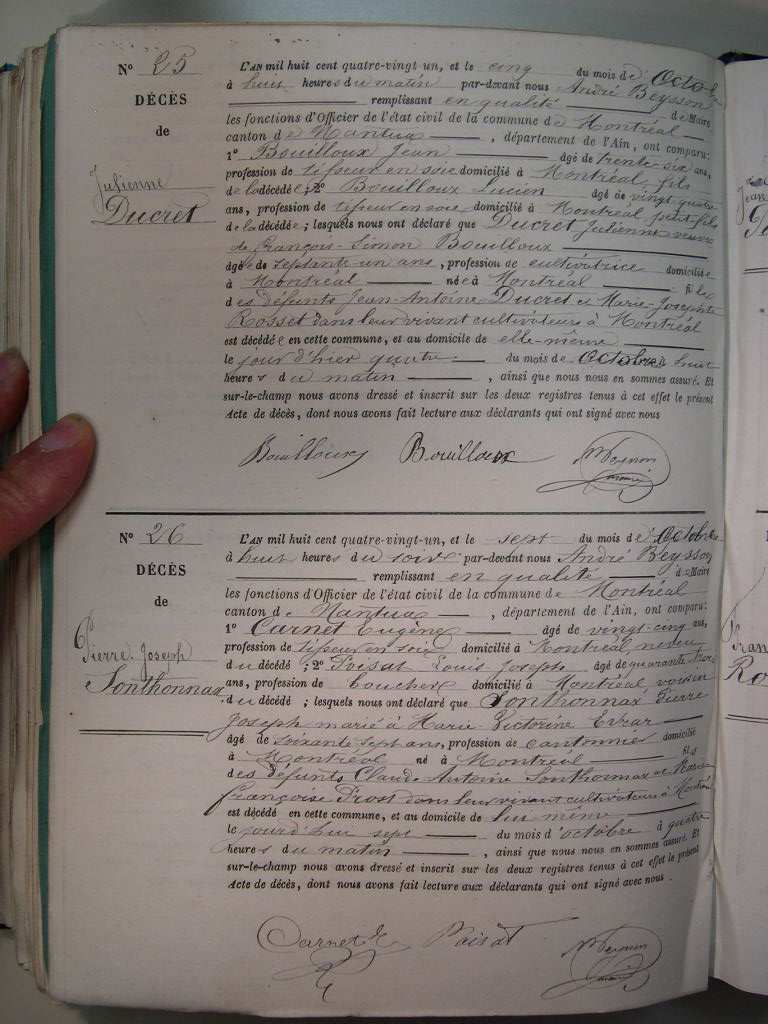 N° 25
DÉCÈS
de
Julienne
Ducret
L'AN mil huit cent quatre-vingt un, et le cinq du mois de Octobre
à huit heures du matin par-devant nous André Beysson
remplissant en qualité de Maire
les fonctions d'Officier de l'état civil de la commune de Montréal
canton de Nantua, département de l'Ain, ont comparu:
1° Bouilloux Jean âgé de trente-six ans,
profession de tisseur en soie domicilié à Montréal, fils
de la décédée; 2° Bouilloux Lucien âgé de vingt quatre
ans, profession de tisseur en soie domicilié à Montréal petit fils
de la décédée; lesquels nous ont déclaré que Ducret Julienne veuve
de François-Simon Bouilloux
âgée de septante-un ans, profession de cultivatrice domiciliée
à Montréal née à Montréal fille
des défunts Jean-Antoine Ducret et Marie-Josephte
Rosset dans leur vivant cultivateurs à Montréal
est décédée en cette commune, et au domicile de elle-même
le jour d'hier quatre du mois de Octobre à huit
heures du matin, ainsi que nous nous en sommes assuré. Et
sur-le-champ nous avons dressé et inscrit sur les deux registres tenus à cet effet le présent
Acte de décès, dont nous avons fait lecture aux déclarants qui ont signé avec nous
Bouilloux Bouilloux
N° 26
DÉCÈS
de
Pierre Joseph
Sonthonnax
L'AN mil huit cent quatre-vingt-un, et le sept du mois d'Octobre
à huit heures du soir par-devant nous André Beysson
remplissant en qualité de Maire
les fonctions d'Officier de l'état civil de la commune de Montréal
canton de Nantua, département de l'Ain, ont comparu:
1° Carnet Eugène âgé de vingt-cinq ans,
profession de tisseur en soie domicilié à Montréal, neveu
du décédé; 2° Poisat Louis Joseph âgé de quarante
ans, profession de boucher domicilié à Montréal voisin
du décédé; lesquels nous ont déclaré que Sonthonnax Pierre
Joseph marié à Marie Victorine Evrar
âgé de soixante sept ans, profession de cantonnier domicilié
à Montréal né à Montréal fils
des défunts Claude Antoine Sonthonnax et Marie
françoise Prost dans leur vivant cultivateurs à Montréal
est décédé en cette commune, et au domicile de lui même
le jourd'hui sept du mois d'octobre à quatre
heures du matin, ainsi que nous nous en sommes assuré. Et
sur-le-champ nous avons dressé et inscrit sur les deux registres tenus à cet effet le présent
Acte de décès, dont nous avons fait lecture aux déclarants qui ont signé avec nous.
Carnet E Poisat